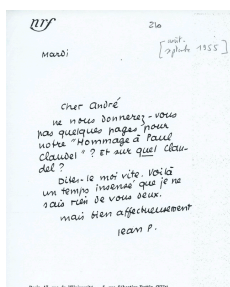 nrf
210
[août-
septembre 1955]
Mardi
Cher André
ne nous donnerez-vous
pas quelques pages pour
notre "Hommage à Paul
Claudel"? Et sur quel Clau-
del?
Dites-le moi vite. Voilà
un temps insensé que je ne
sais rien de vous deux.
mais bien affectueusement
Jean P.